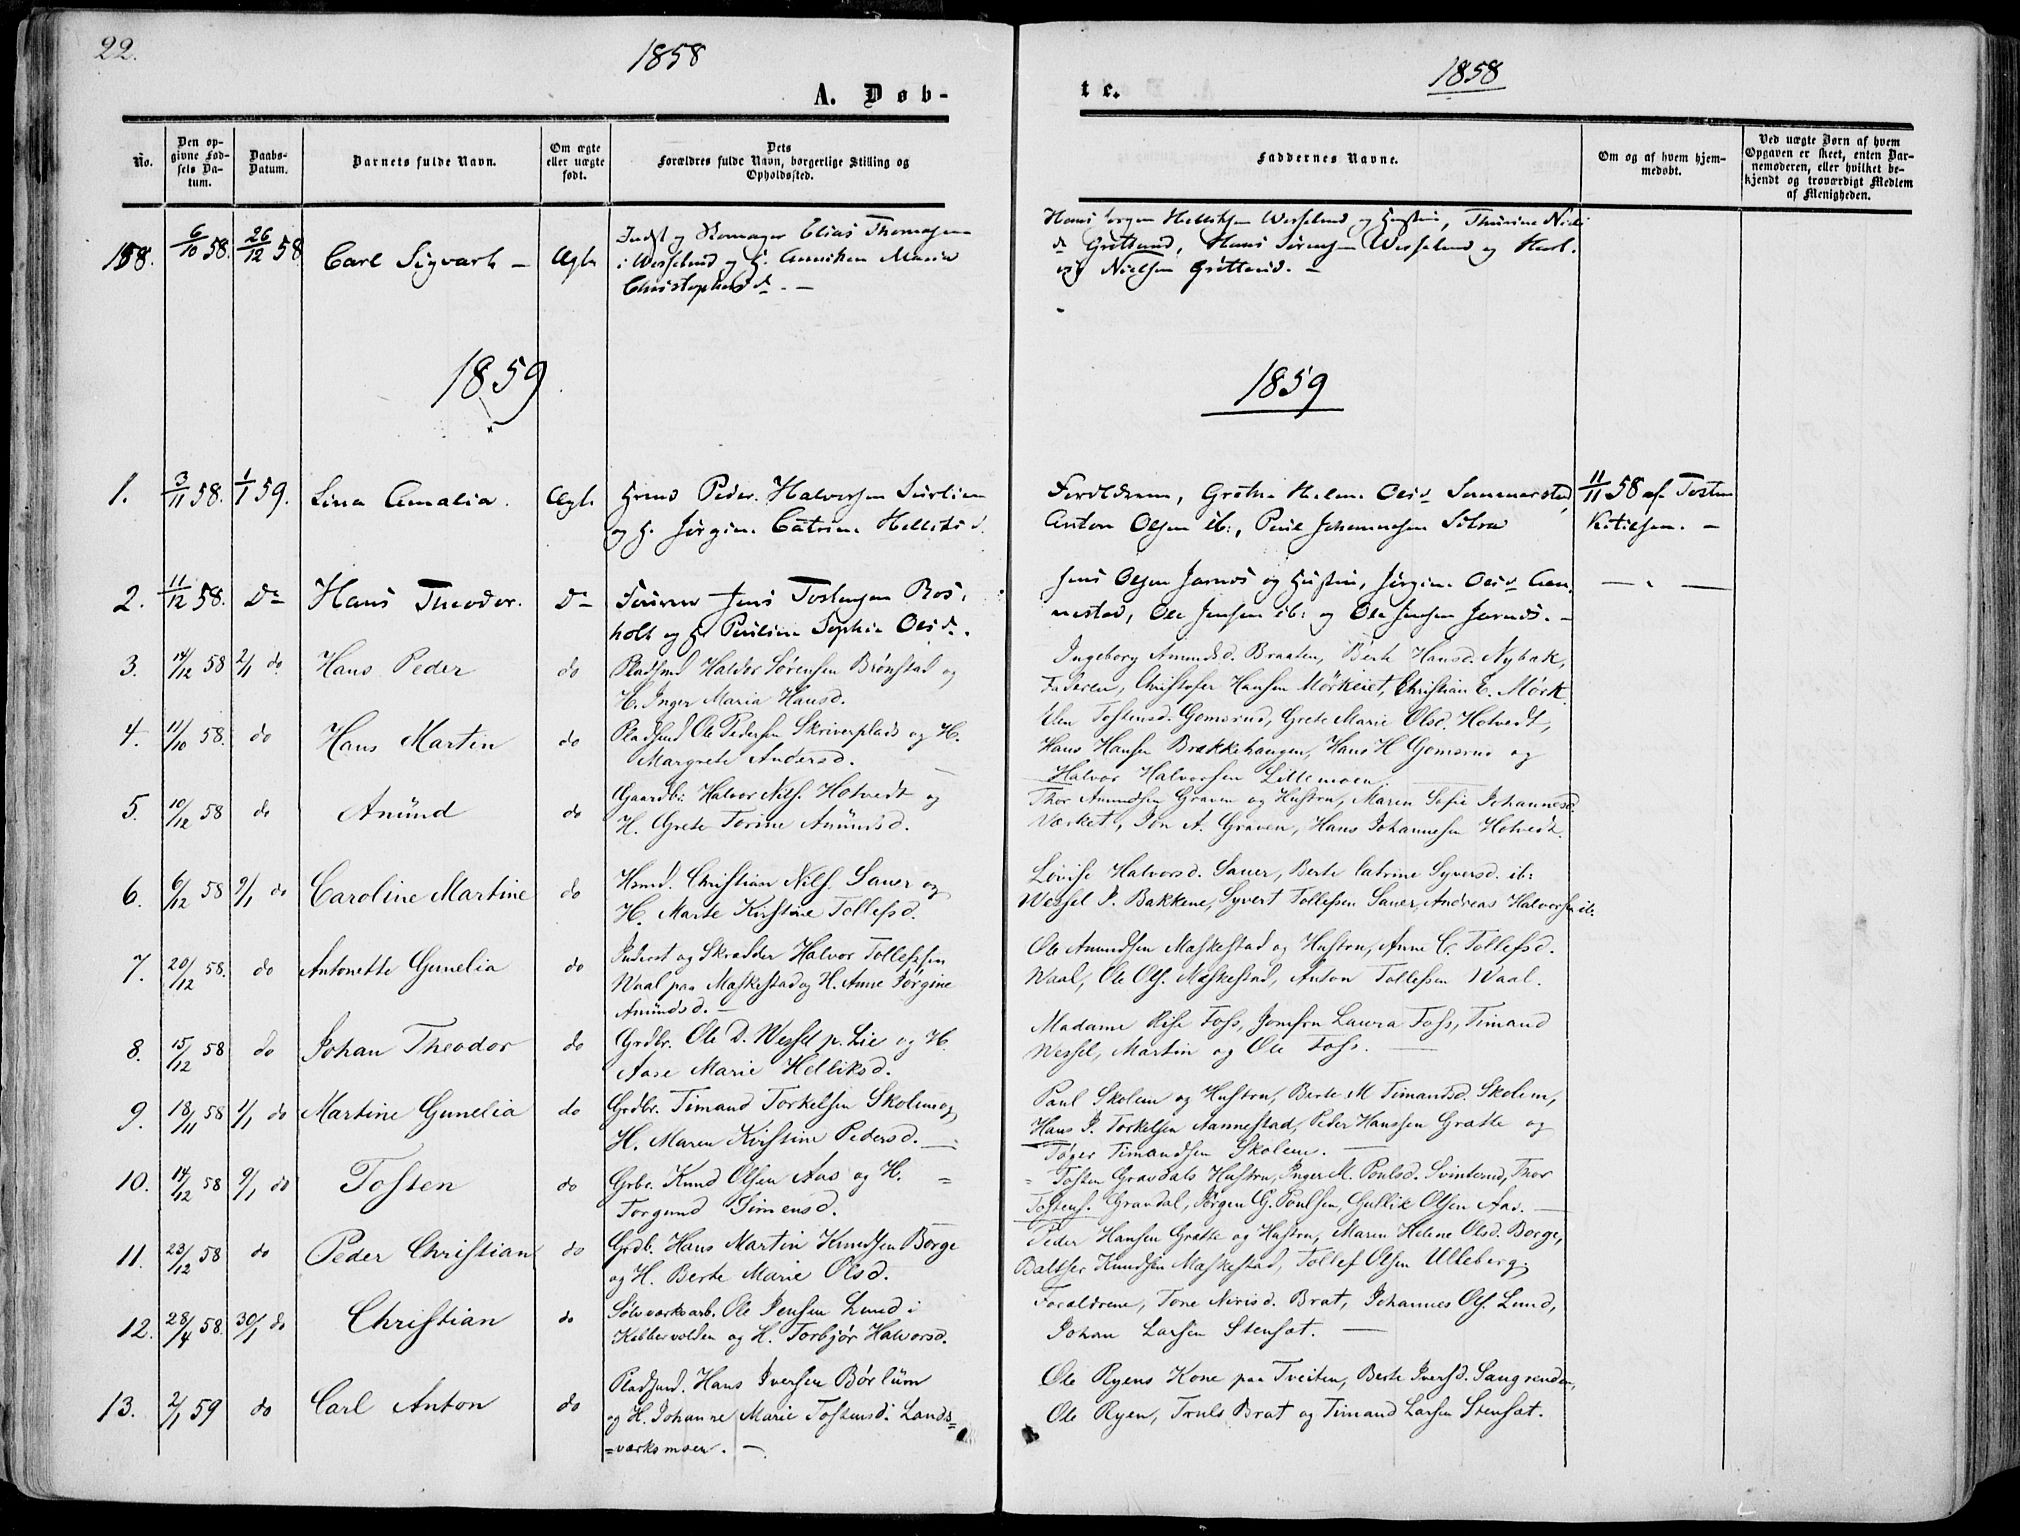 22.
1858
1858
A. Døb-
te.
No.
Den op-
givne Fød-
sels Da-
tum.
Daabs-
Datum.
Barnets fulde Navn.
Om ægte
eller uægte
født.
Dets
Forældres fulde Navn, borgerlige Stilling og
Opholdssted.
Faddernes Navne.
Om og af hvem hjem-
medøbt.
Ved uægte Børn af hvem
Opgaven er skeet, enten Bar-
nemoderen, eller hvilket be-
kjendt og troværdigt Medlem
af Menigheden.
158. 6/10 58. 26/12 58 Carl Sigvart – Ægte
Indst og Skomager Elias Thomesen
i Wesselund og H. Anniken Maria
Christophersd. –
Hans Jørgen Helliksen Wesselund og Hustru, Thurine Niels
d. Grøtterud, Hans Sørensen Wesselund og
Nielsen Grøtterud. –
1859
1859
1. 3/11 58. 1/1 59. Lina Amalia. Ægte
Peder Halvorsen
og H. Jørgine Catrine Helliksd.
Forældrene, Grethe Helene Olsd.
Anton Olsen ib:, Paul Johannesen
11/11 58 af Tosten
Kittilsen. –
2. 11/12 58. Do Hans Theodor. Do
Jens Tostensen Ros-
holt og H. Pauline Sophie Olsd.
Jens Olsen Jarnæs og Hustru, Jørgine Olsd. Aan-
nestad, Ole Jensen ib: og Ole Jensen Jarnæs. –
3. 14/12 58 2/1 do. Hans Peder do
Pladsmd Halvor Sørensen Brønstad og
H. Inger Maria Hansd.
Ingeborg Amundsd. Braaten, Berte Hansd. Nybak,
Faderen, Christofer Hansen Mørkeiet, Christian E. Mørk.
4. 11/10 58. do Hans Martin do
Pladsmd Ole Pedersen Skriverplads og H.
Margrete Andersd.
Elen Tostensd. Gomsrud, Grete Marie Olsd. Hotvedt,
Hans Hansen Brækkehaugen, Hans H Gomsrud og
Halvor Halvorsen Lillemoen.
5. 10/12 58 do Amünd do
Gaardb: Halvor Nils. Hotvedt og
H. Grete Torine Amündsd.
Thor Amundsen Graven og Hustru, Maren Sofie Johannesd.
Værket, Jon A. Graven, Hans Johannesen Hotvedt.
6. 6/12 58 9/1 do Caroline Martine do
Hsmd. Christian Nils. Sauer og
H. Marte Kirstine Tollefsd.
Lovise Halvorsd. Sauer, Berte Catrine Syversd. ib:
Wessel P. Bakkene, Syvert Tollefsen Sauer, Andreas Halvorsen ib.
7. 20/12 58. do Antonette Gunelia do
Inderst og Skrædder Halvor Tollefsen
Waal paa Maskestad og H. Anne Jørgine
Amündsd. –
Ole Amundsen Maskestad og Hustru, Anne C. Tollefsd.
Waal, Ole Ols. Maskestad, Anton Tollefsen Waal.
8. 15/12 58 do Johan Theodor do
Grdbr. Ole D. Wessel p. Lie og H.
Aase Marie Helliksd.
Madame Rise Foss, Jomfru Laura Foss, Timand
Wessel, Martin og Ole Foss. –
9. 18/11 58 1/1 do Martine Gunelia do
Grdbr. Timand Torkelsen Skolem og
H. Maren Kirstine Pedersd. –
Paul Skolem og Hustru, Berte M Timandsd. Skolem,
Hans P. Torkelsen Aannestad, Peder Hanssen Gratte og
Timandsen Skolem. –
10. 14/12 58 9/1 do Tosten do
Grbr. Knud Olsen Aas og H. =
Torgund Simensd.
= Tosten Gravdals Hustru, Inger M. Poulsd. Svinterud, Thor
Tostens. Gravdal, Jørgen G. Poulsen, Gullik Olsen Aas. –
11. 23/12 58 do Peder Christian do
Grdb. Hans Martin Knudsen Borge
og H. Berte Marie Olsd.
Peder Hansen Gratte og Hustru, Maren Helene Olsd. Borge,
Baltser Knudsen Maskestad, Tollef Olsen Ulleberg.
12. 28/4 58. 30/1 do Christian do
Sølvværksarb. Ole Jensen Lund i
Kobbervolden og H. Torbjør Halvorsd.
Forældrene, Tone Nirisd. Brat, Johannes Ols. Lund,
Johan Larsen Stensæt. –
13. 2/1 59 do Carl Anton do
Pladsmd. Hans Iversen Børlüm
og H. Johanne Marie Tostensd. Lands=
=værksmoen. –
Ole Ryens Kone paa Tveiten, Berte Iversd. Saugrenden,
Ole Ryen, Truls Brat og Timand Larsen Stensæt.